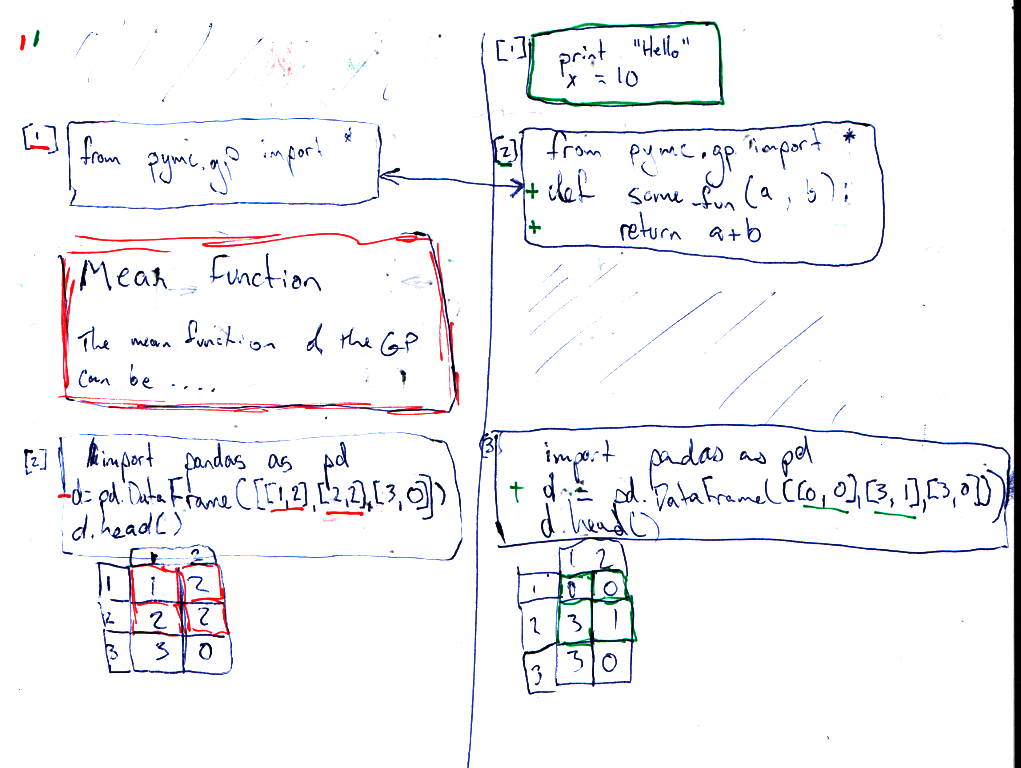 [1]
from pymc.gp import *
Mean Function
The mean function of the GP
can be ....
[2]
import pandas as pd
- d = pd.DataFrame([[1,2],[2,2],[3,0]])
d.head()
1 2
1 1 2
2 2 2
3 3 0
[1]
print "Hello"
x = 10
[2]
from pymc.gp import *
+ def some_fun(a, b):
+ return a+b
[3]
import padas as pd
+ d = pd.DataFrame([[0,0],[3,1],[3,0]])
d.head()
1 2
1 0 0
2 3 1
3 3 0